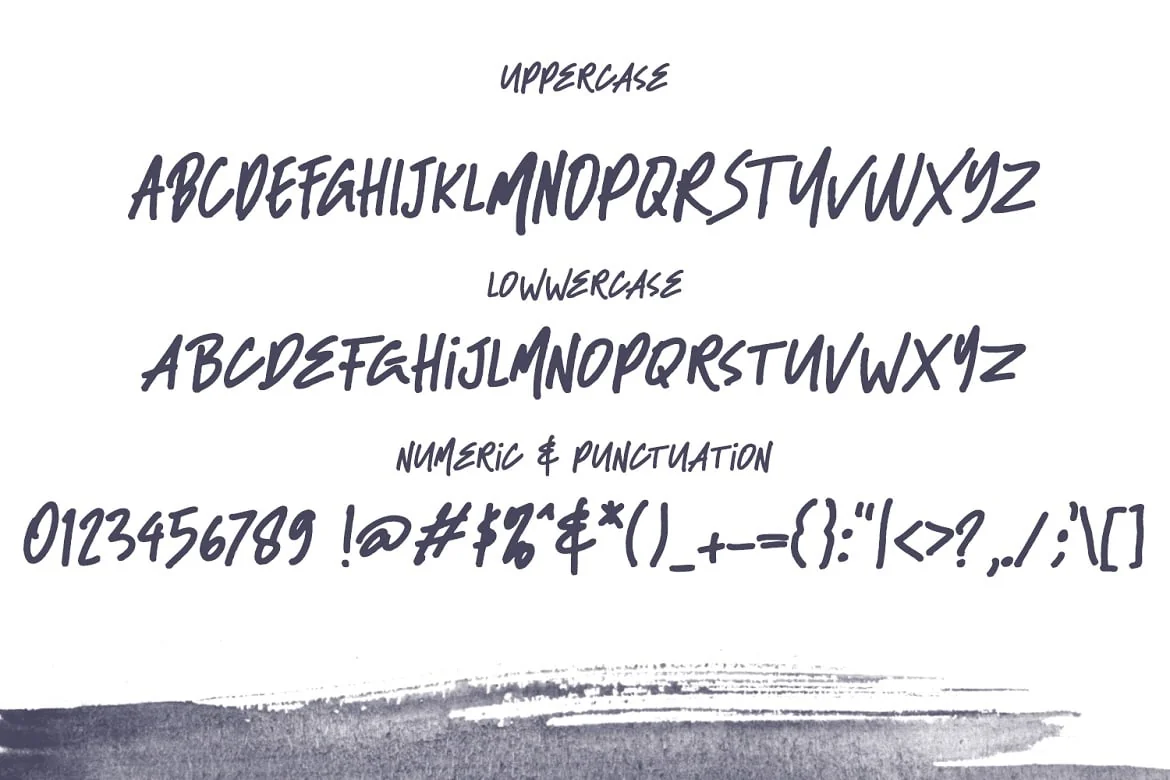 UPPERCASE
ABCDEFGHIJKLMNOPQRSTUVWXYZ
LOWWERCASE
ABCDEFGHiJLMNOPQRSTUVWXYZ
NUMERiC & PUNCTUATiON
0123456789 !@#$%^&*()_+-={}:"|<>?,./;'\[]